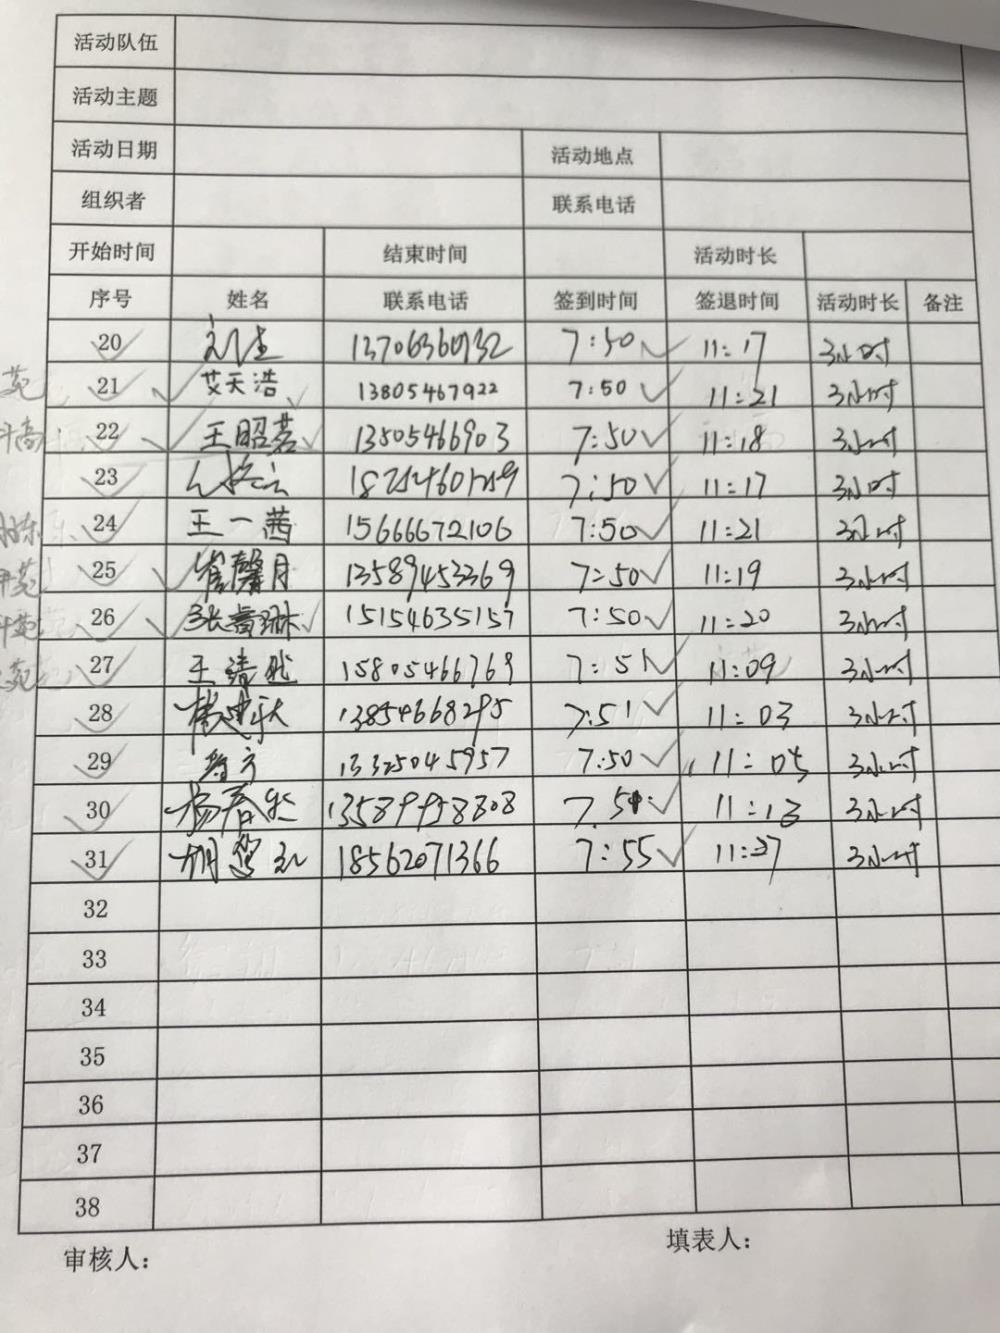 活动队伍
活动主题
活动日期 活动地点
组织者 联系电话
开始时间 结束时间 活动时长
序号 姓名 联系电话 签到时间 签退时间 活动时长 备注
20 13706360932 7:50 11:17 3小时
苑 21 艾天浩 13805467922 7:50 11:21 3小时
22 王昭茗 13505466903 7:50 11:18 3小时
23 7:50 11:17 3小时
24 王一茜 15666672106 7:50 11:21 3小时
25 崔馨月 13589453369 7:50 11:19 3小时
26 15154635157 7:50 11:20 3小时
苑 27 王靖 15805466769 7:51 11:09 3小时
28 13854668295 7:51 11:03 3小时
29 13325045957 7:50 11:05 3小时
30 杨春 13589958808 11:13 3小时
31 18562071366 7:55 11:37 3小时
32
33
34
35
36
37
38
审核人： 填表人：